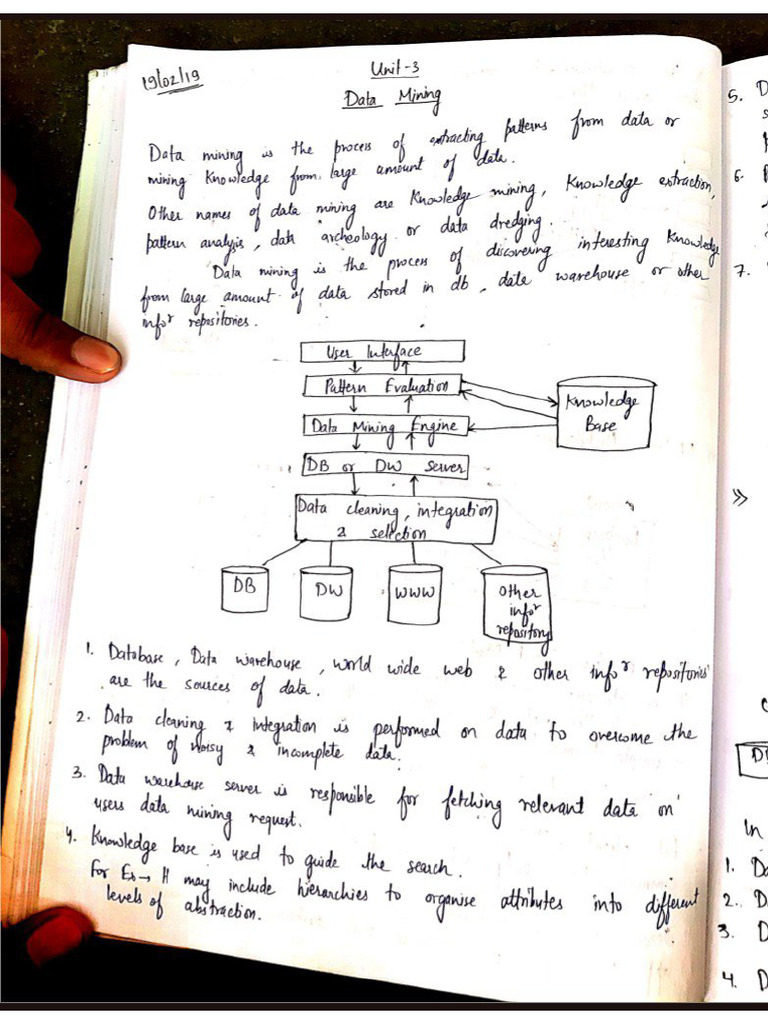 19/02/19
Unit-3
Data Mining
Data mining is the process of extracting patterns from data or
mining knowledge from large amount of data.
Other names of data mining are knowledge mining, knowledge extraction,
pattern analysis, data archeology or data dredging.
Data mining is the process of discovering interesting knowledge
from large amount of data stored in db, data warehouse or other
infoʳ repositories.
User Interface
Pattern Evaluation
Knowledge
Base
Data Mining Engine
DB or DW Server
Data cleaning, integration
& selection
DB
DW
WWW
Other
infoʳ
repository
1. Database, Data warehouse, world wide web & other infoʳ repositories
are the sources of data.
2. Data cleaning & integration is performed on data to overcome the
problem of noisy & incomplete data.
3. Data warehouse server is responsible for fetching relevant data on
users data mining request.
4. Knowledge base is used to guide the search.
For Ex→ It may include hierarchies to organise attributes into different
levels of abstraction.
5. D
6.
7.
»
In
1. Da
2. D
3. D
4. D